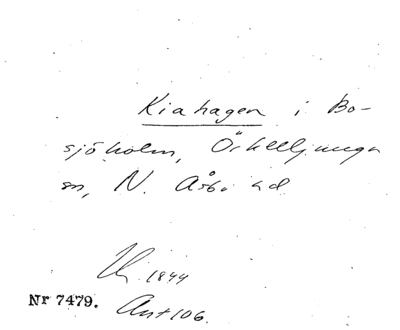 Kiahagen i Bo-
sjöholm, Örkelljunga
sn, N. Åsbo hd
1844
Nr 7479. Ant 106.